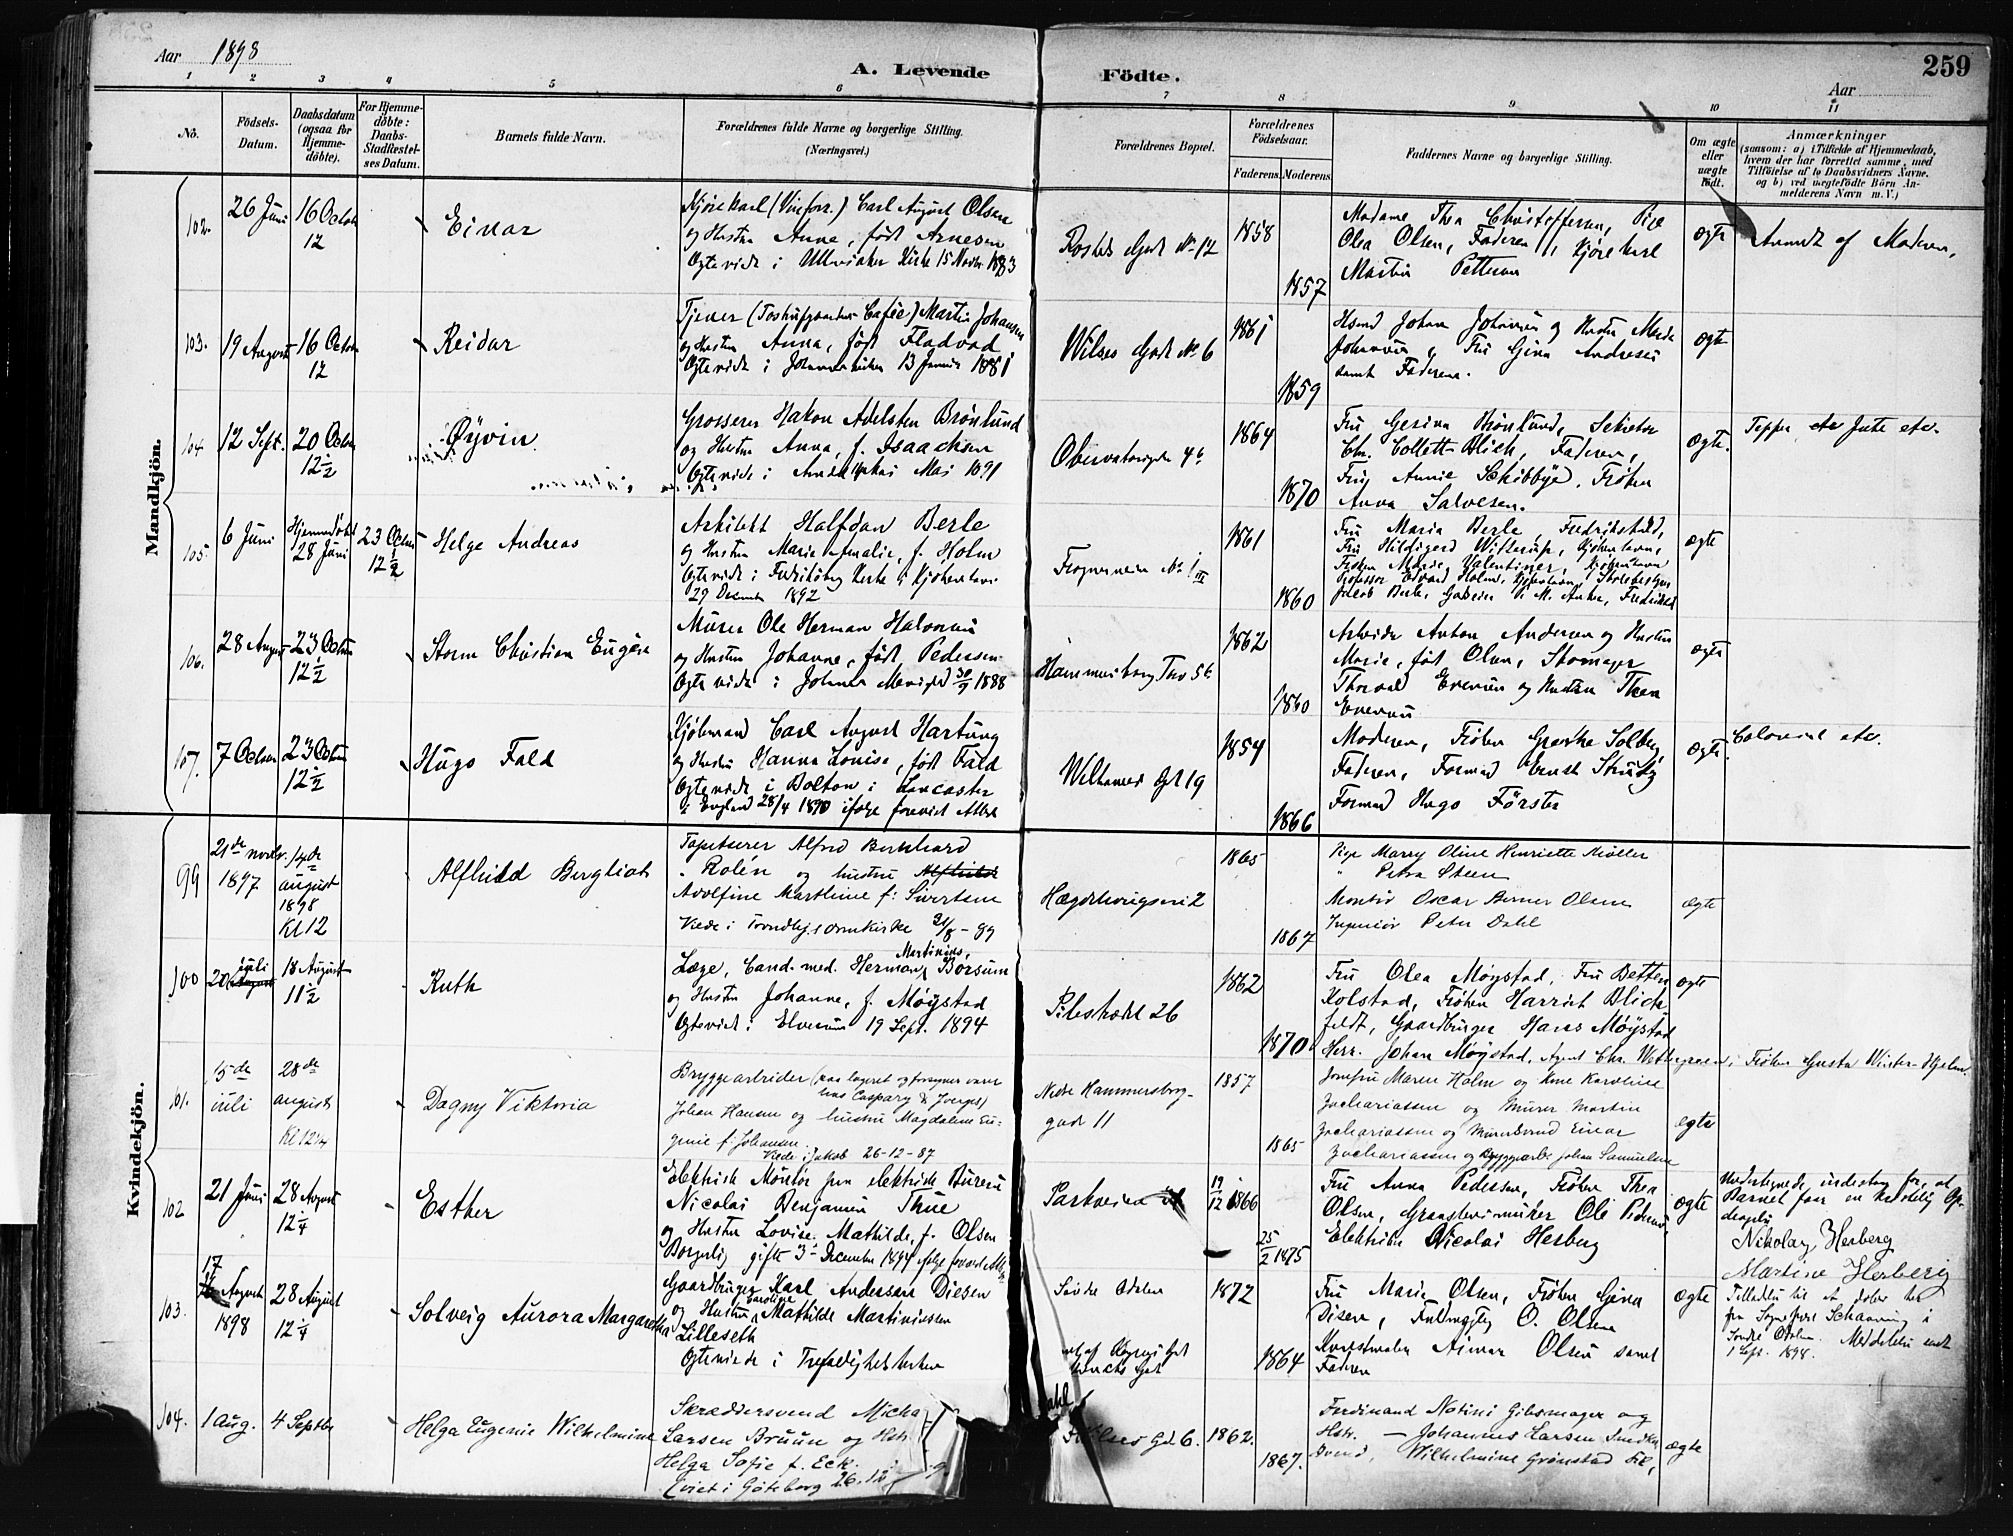 Aar 1898
A. Levende Födte.
259
Aar
1 2 3 4 5 6 7 8 9 10 11
No.
Födsels-Datum.
Daabsdatum (ogsaa for Hjemme-döbte).
For Hjemme-döbte: Daabs-Stadfæstel-ses Datum.
Barnets fulde Navn.
Forældrenes fulde Navne og borgerlige Stilling.
(Næringsvei.)
Forældrenes Bopæl.
Forældrenes Födselsaar.
Faderens. Moderens.
Faddernes Navne og borgerlige Stilling.
Om ægte eller uægte födt.
Anmærkninger
(saasom: a) i Tilfælde af Hjemmedaab,
hvem der har forrettet samme, med
Tilföielse af to Daabsvidners Navne.
og b) ved uægtefödte Börn An-
melderens Navn m. V.)
Mandkjön.
102. 26 Juni 16 Octob 12 Einar
Kjørekarl (Vinforr.) Carl August Olsen
og Hustru Anne, født Arnesen
Ægteviet i Kirke 15 1883
Gade No 12
1858 1857
Madame Thea Christoffersen, Pige
Olea Olsen, Faderen, Kjørekarl
Martin Pettersen
ægte
Anmeldt af Moderen.
103. 19 August 16 Octob 12 Reidar
Tjener Martin Johansen
og Hustru Anna, født Fladvad
Ægteviet i Johannes kirken 13 1881
Wilses Gade No 6
1861 1859
Johan Johansen og Hustru
Johansen, Fru Gina Andresen
samt Faderen.
ægte
104. 12 Sept. 20 Octob 12½ Øyvin
Grosserer Hakon Adelsten Brönlund
og Hustru Anna, f. Isaachsen
Ægteviet i Mai 1891
Observatoriegden 4b
1864 1870
Fru Gesina Brönlund, Sekretær
Chr. Collett Blich, Faderen,
Fru Annie Schibbye, Frøken
Anna Salvesen.
ægte.
105. 6 Juni Hjemmedøbt 28 Juni 23 Octob 12½ Helge Andreas
Arkitekt Halfdan Berle
og Hustru Marie Amalie, f. Holm
Ægteviet i Fredriksberg Kirke i Kjøbenhavn
29 December 1892
Frognerveien No 1 III
1861 1860
Fru Maria Berle, Fredrikstad,
Fru Hildigerd Witterup, Kjøbenhavn,
Frøken Valentiner, Kjøbenhavn
Professor Edvard Holm, Kjøbenhavn,
Jakob Berle, Anker, Fredrikstad
ægte
106. 28 August 23 Octob 12½ Storm Christian Eugén
Murer Ole Herman Halvorsen
og Hustru Johanne, født Pedersen
Ægteviet i Johannes 30/9 1888
Hammersborg Torv 5b
1862 1860
Arbeider Anton Andersen og Hustru
Marie, født Olsen, Skomager
Thorvald Evensen og Hustru Thea
Evensen
ægte
107. 7 Octob 23 Octob 12½ Hugo Fald
Kjøbmand Carl August Hartung
og Hustru Hanna Louise, født Fald
Ægteviet i Bolton i Lancaster
i England 28/4 1890 ifølge forevist Attest
Welhavens Gd 19
1854 1866
Moderen, Frøken Grethe Solberg,
Faderen, Formand
Formand Hugo Förster
ægte.
Colonial etc.
Kvindekjön.
99 21de novbr. 1897 14de august 1898 Kl 12 Alfhild Bergliot
Tapetserer Alfred Bernhard
Rolén og hustru Alfhild
Adolfine Martinne f: Sivertsen
Viede i Trondhj. domkirke 31/8 - 89
Hægdehaugsvei 2
1865 1867
Pige Marry Oline Henriette Møller
" Petra Steen
Montør Oscar Berner Olsen
Ingeniør Peter Dahl
ægte
100 20 August juli 18 August 11½ Ruth
Læge, Cand. med. Herman Martinius, Borsum
og Hustru Johanne, f. Møystad
Ægteviet i Elverum 19 Sept. 1894
Pilestrædet 26
1862 1870
Fru Olea Møystad, Fru Betten
Kolstad, Frøken Harriet Blich-
feldt, Gaardbruger Hans Møystad
Herr. Johan Møystad, Agent Chr. Wettergreen, Frøken Gusta Winter-Hjelm.
ægte
101. 15de juli 28de august Kl 12¼ Dagny Viktoria
Bryggearbeider (paa lageret
hos Caspary & Joerges)
Johan Hansen og hustru Magdalene Eu-
genie f: Johansen.
Viede i Jakob 26-12-87
Nedre Hammersborg-
gade 11
1857 1865
Jomfru Maren Holm og Ane Karoline
Zachariassen og Murer Martin
Zachariassen og Murersvend Einar
Zachariassen og Bryggearb. Johan Samuelsen
ægte
102 21 Juni 28 August 12¼ Esther
Elektrisk Montør fra elektriske Bureau
Nicolai Benjamin Thue
og Hustru Lovise Mathilde, f. Olsen
Borgerlig gifte 3 December 1894 ifølge forevist
Parkveien
19/12 1866 25/2 1875
Fru Anna Pedersen, Frøken Thea
Olsen, Ole Pedersen,
Elektriker Nicolai Herberg
ægte
Undertegnede indestaar for, at
Barnet faar en kristelig Op-
dragelse
Nikolay Herberg
Martine Herberg
103. 17 August 1898 28 August 12¼ Solveig Aurora Margaretha
Gaardbruger Karl Andersen Diesen
og Hustru Caroline Mathilde Martinussen
Lilleseth
Ægteviede i Trefoldighedskirken
Søndre Odalen
1872 1864
Fru Marie Olsen, Frøken Gina
Disen, Fuldmægtig O. Olsen
Kunstmaler Aimar Olsen samt
Faderen
ægte
Tilladelse til at døbes her
fra Sognepræst Schaaning i
Søndre Odalen. Meddelelse sendt
1 Sept. 1898.
104. 1 Aug. 4 Septbr Helga Eugenie Wilhelmine
Skræddersvend Micha
Larsen Bruun og Hstr.
Helga Sofie f. Eck.
Eviet i Göteborg 26.12
Gd. 6.
1862. 1867.
Ferdinand Notini Gibsmager og
Hstr. — Johannes Larsen Snedker
svend, Wilhelmine Grønstad Frk,
ægte